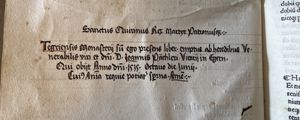 Sanctus Quirinus Rex Martyr Patronus
Tegernsen Monasterij sum ego presens liber emptus ab heredibus Ve
nerabilis viri et dni D. Joannis Pachler Vicarij in Egern
Qui obijt Anno dni 1515 Octavo die Junij
Cuius Anima requie potiatur Amen